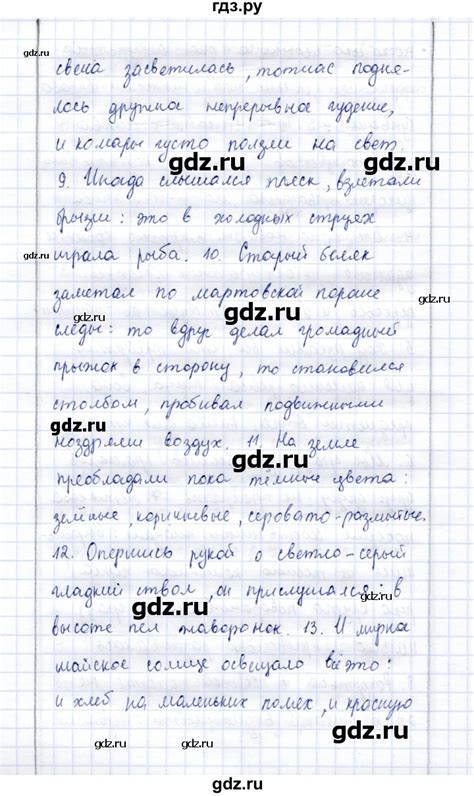 гдз.ру
свеча засветилась, тотчас подня-
лось дружное непрерывное гудение,
и комары густо ползли на свет.
9. Иногда слышался плеск, взлетали
брызги: это в холодных струях
играла рыба. 10. Старый беляк
заметал по мартовской пороше
следы: то вдруг делал громадный
прыжок в сторону, то становился
столбом, пробивал подвижными
ноздрями воздух. 11. На земле
преобладали пока тёмные цвета:
земные, коричневые, серовато-размытые.
12. Опершись рукой о светло-серый
гладкий ствол, он прислушался: в
высоте пел жаворонок. 13. И мирно
майское солнце освещало всё это:
и хлеб на маленьких полях, и красную
gdz.ru
gdz.ru
gdz.ru
gdz.ru
gdz.ru
gdz.ru
gdz.ru
gdz.ru
gdz.ru
gdz.ru
gdz.ru
gdz.ru
gdz.ru
gdz.ru